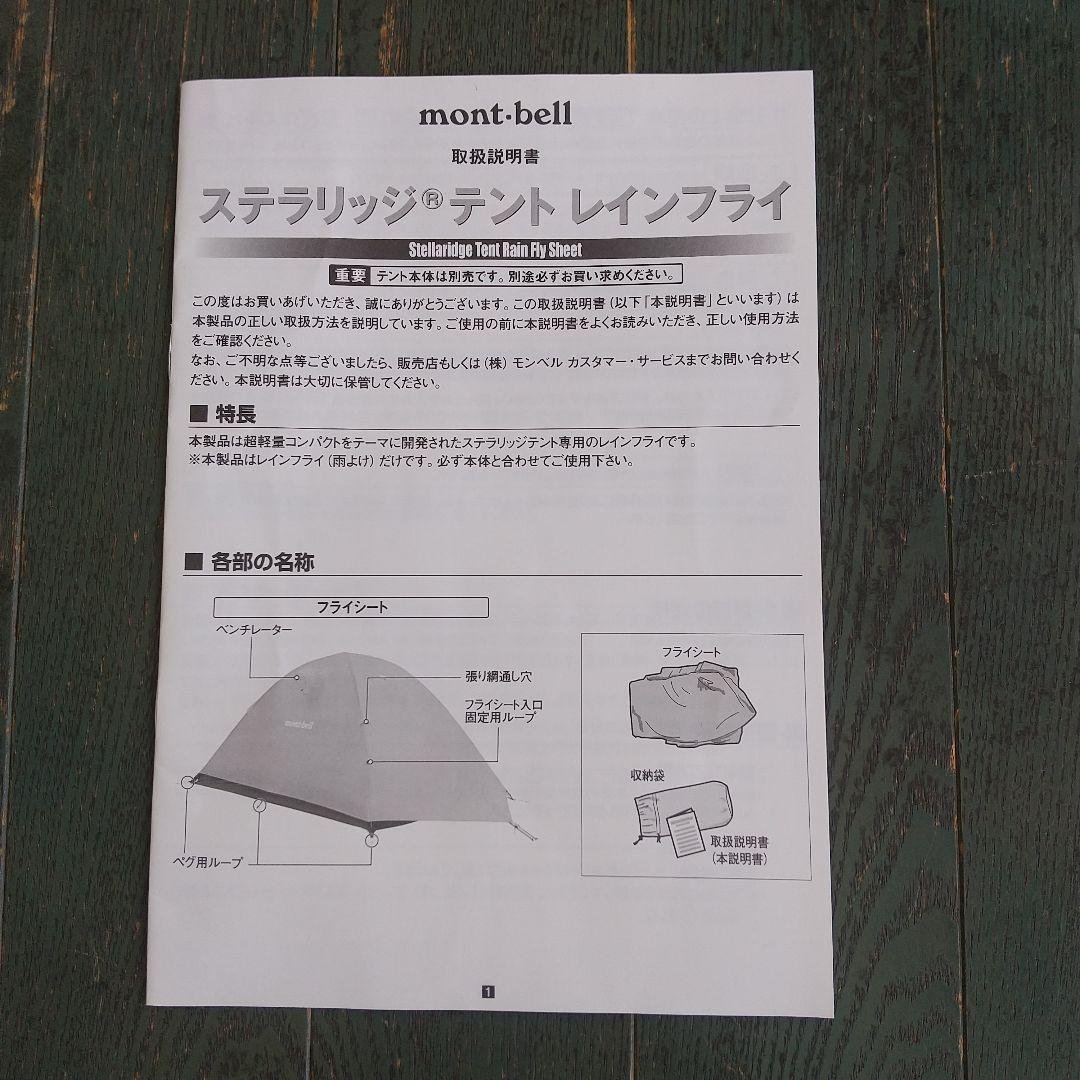 mont·bell
取扱説明書
ステラリッジ®テント レインフライ
Stellaridge Tent Rain Fly Sheet
重要 テント本体は別売です。別途必ずお買い求めください。
この度はお買いあげいただき、誠にありがとうございます。この取扱説明書(以下「本説明書」といいます)は
本製品の正しい取扱方法を説明しています。ご使用の前に本説明書をよくお読みいただき、正しい使用方法
をご確認ください。
なお、ご不明な点等ございましたら、販売店もしくは(株)モンベル カスタマー・サービスまでお問い合わせく
ださい。本説明書は大切に保管してください。
■ 特長
本製品は超軽量コンパクトをテーマに開発されたステラリッジテント専用のレインフライです。
※本製品はレインフライ(雨よけ)だけです。必ず本体と合わせてご使用下さい。
■ 各部の名称
フライシート
ベンチレーター
張り綱通し穴
フライシート入口
固定用ループ
mont-bell
ペグ用ループ
フライシート
収納袋
取扱説明書
(本説明書)
1